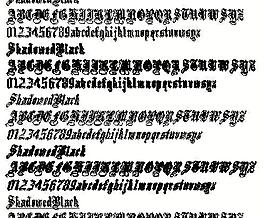 ShadowedBlack
ABCDEFGHIJKLMNOPQRSTUVWXYZ
0123456789abcdefghijklmnopqrstuvwxyz
ShadowedBlack
ABCDEFGHIJKLMNOPQRSTUVWXYZ
0123456789abcdefghijklmnopqrstuvwxyz
ShadowedBlack
ABCDEFGHIJKLMNOPQRSTUVWXYZ
0123456789abcdefghijklmnopqrstuvwxyz
ShadowedBlack
ABCDEFGHIJKLMNOPQRSTUVWXYZ
0123456789abcdefghijklmnopqrstuvwxyz
ShadowedBlack
ABCDEFGHIJKLMNOPQRSTUVWXYZ